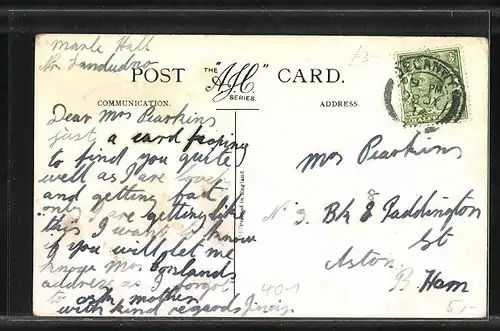 Marle Hall
Nr Landudno
POST "THE A.H. SERIES." CARD.
COMMUNICATION.
ADDRESS.
£3-
Dear Mrs Pearkins
just a card hoping
to find you quite
well as I are
and getting fat
are getting like
this I want to know
if you will let me
know Mrs
address as I forgot
to ask mother
with kind regards
Printed in England
Mrs Pearkins
N 3 Bk 8 Paddington
St
Aston
B Ham
40-1
5,-